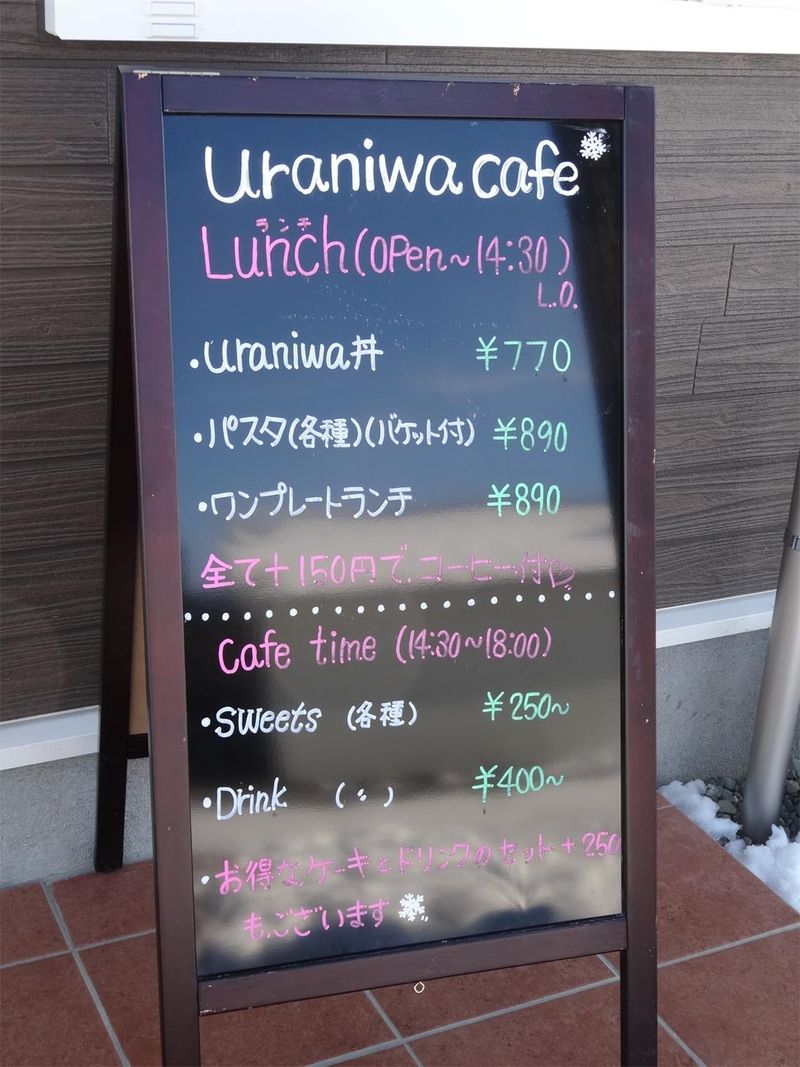 uraniwa cafe
ランチ
Lunch (OPen~14:30)
L.O.
・uraniwa丼 ¥770
・パスタ(各種)(バケット付) ¥890
・ワンプレートランチ ¥890
全て+150円で、コーヒー付♡
Cafe time (14:30~18:00)
・Sweets (各種) ¥250~
・Drink (〃) ¥400~
・お得なケーキとドリンクのセット+250
も、ございます